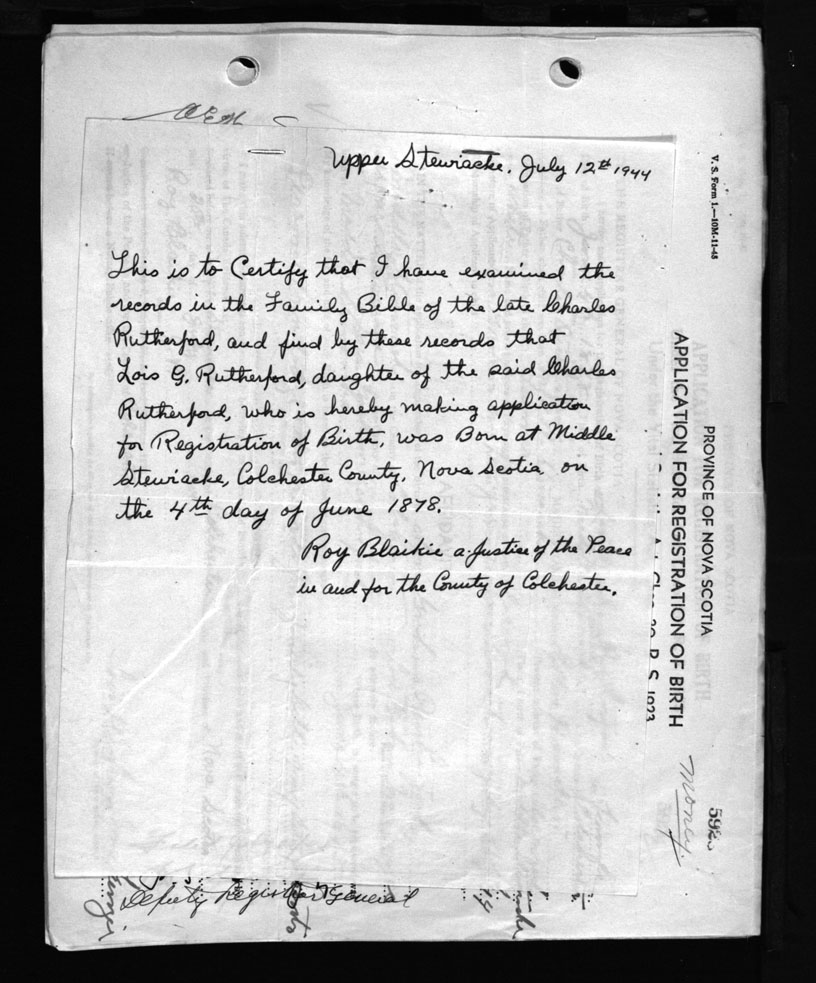 Upper Stewiacke, July 12th 1944
This is to Certify that I have examined the
records in the Family Bible of the late Charles
Rutherford, and find by these records that
Lois G. Rutherford, daughter of the said Charles
Rutherford, who is hereby making application
for Registration of Birth, was Born at Middle
Stewiacke, Colchester County, Nova Scotia on
the 4th day of June 1878.
Roy Blaikie a Justice of the Peace
in and for the County of Colchester.
Deputy Registrar General
V. S. Form 1.—10M-11-43
PROVINCE OF NOVA SCOTIA
APPLICATION FOR REGISTRATION OF BIRTH
R. S. 1923
Money.